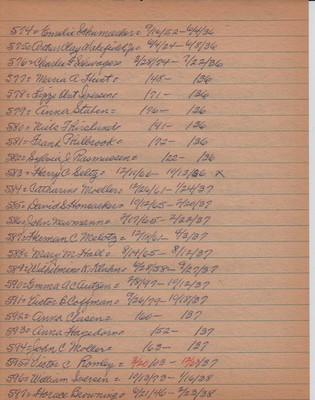 574= Emilie Schumacker= 9/16/52-4/4/36
575= Arthur Clay Wakefield Jr= 4/4/24-4/5/36
576= Charles F. Swagers= 2/28/74-7/22/36
577= Maria A Hunt= 148- 136
578= Lizzie Aut Iversen= 171- 136
579= Anna Staben= 196- 136
580= Niels Thirslund= 141- 136
581= Frank Philbrook= 172- 136
582= Sylvia J. Rasmussen= 122- 136
583= Harry C. Seltz= 12/10/60-10/13/36 x
584= Catharine Moeller= 12/26/61-1/24/37
585= David S Honacker= 10/12/65-2/20/37
586= John Neumann= 2/17/65-2/22/37
587= Herman C. Mebotz= 12/18/61-4/3/37
588= Mary M. Hall= 8/14/65-8/12/37
589= Wilhelmine K. Klahn= 6/28/58-9/27/37
590= Emma A C Autzen= 9/8/97-10/12/37
591= Victor E Coffman= 9/26/79-10/18/37
592= Anna Clusen= 160- 137
593= Anna Hagedorn= 152- 137
594= John C Moller= 163- 137
595= Victor C. Romley= 3/20/03-/37
596= William Iversen= 10/13/73-9/16/38
597= Horace Browning= 6/21/46-3/23/38